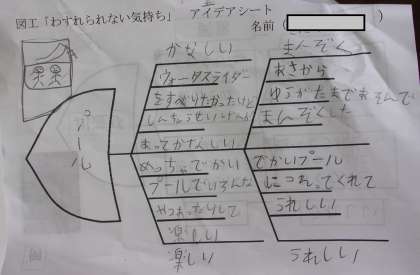 図工「わすれられない気持ち」 アイデアシート
名前( )
プール
かなしい
ウォータースライダー
をすべりたかったけど
しんちょうせいげんが
あってかなしい
まんぞく
あさから
ゆうがたまであそんで
まんぞくした
めっちゃでかい
プールでいろんな
やつあったりして
楽しい
楽しい
でかいプール
につれてくれて
うれしい
うれしい